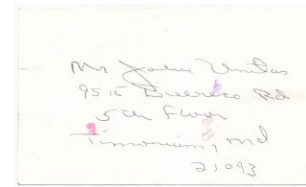 Mr John Unitas
9515 Deereco Rd
5th Floor
Timonium, Md
21093